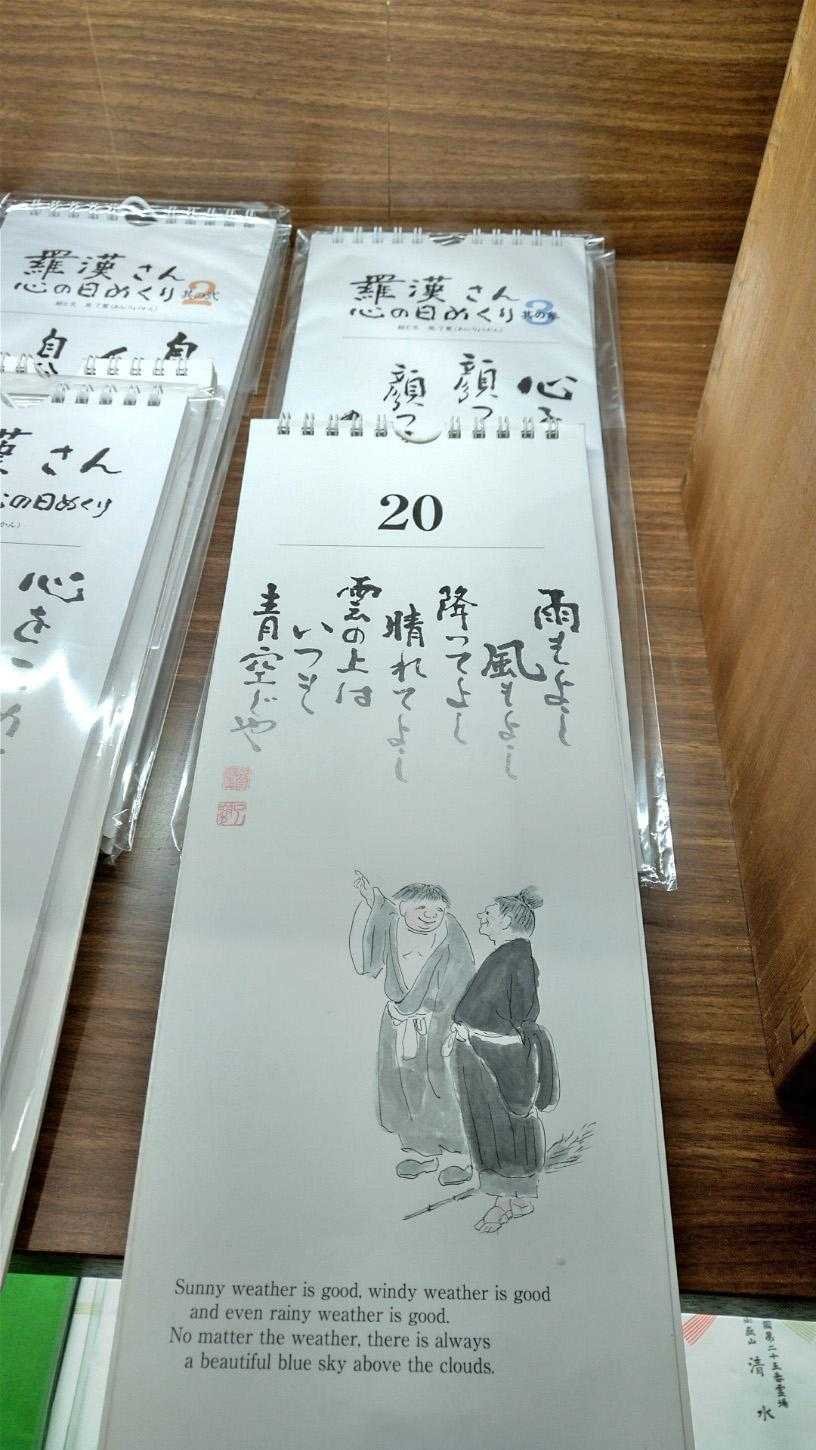 羅漢さん
心の日めくり 其の弐
2
羅漢さん
心の日めくり 其の参
3
心
顔つ
顔つ
さん
の日めくり
心を
20
雨もよし
風もよし
降ってよし
晴れてよし
雲の上は
いつも
青空じや
Sunny weather is good, windy weather is good
and even rainy weather is good.
No matter the weather, there is always
a beautiful blue sky above the clouds.
第二十五番霊場
清水